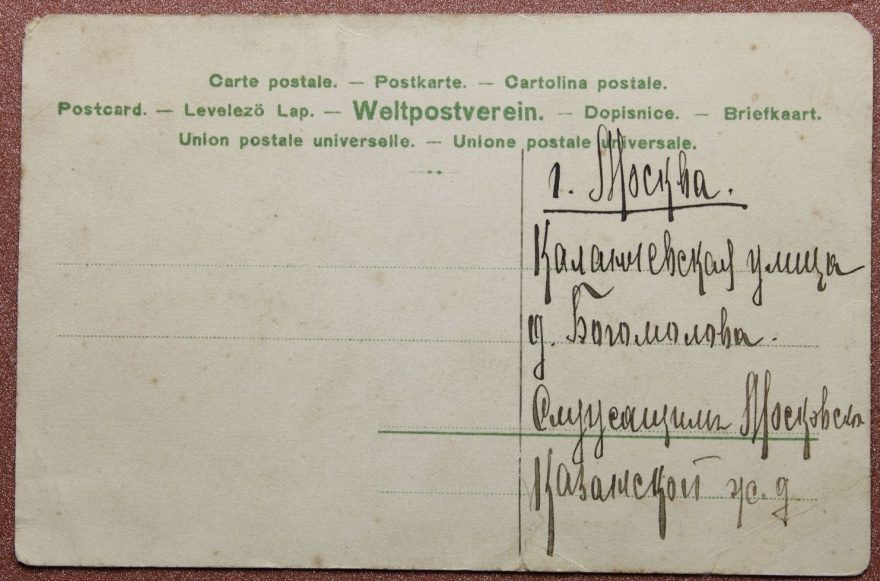 Carte postale. — Postkarte. — Cartolina postale.
Postcard. — Levelezö Lap. — Weltpostverein. — Dopisnice. — Briefkaart.
Union postale universelle. — Unione postale universale.
г. Москва.
Каланчевская улица
д. Богомолова.
Служащимъ Московско
Казанской ж. д.